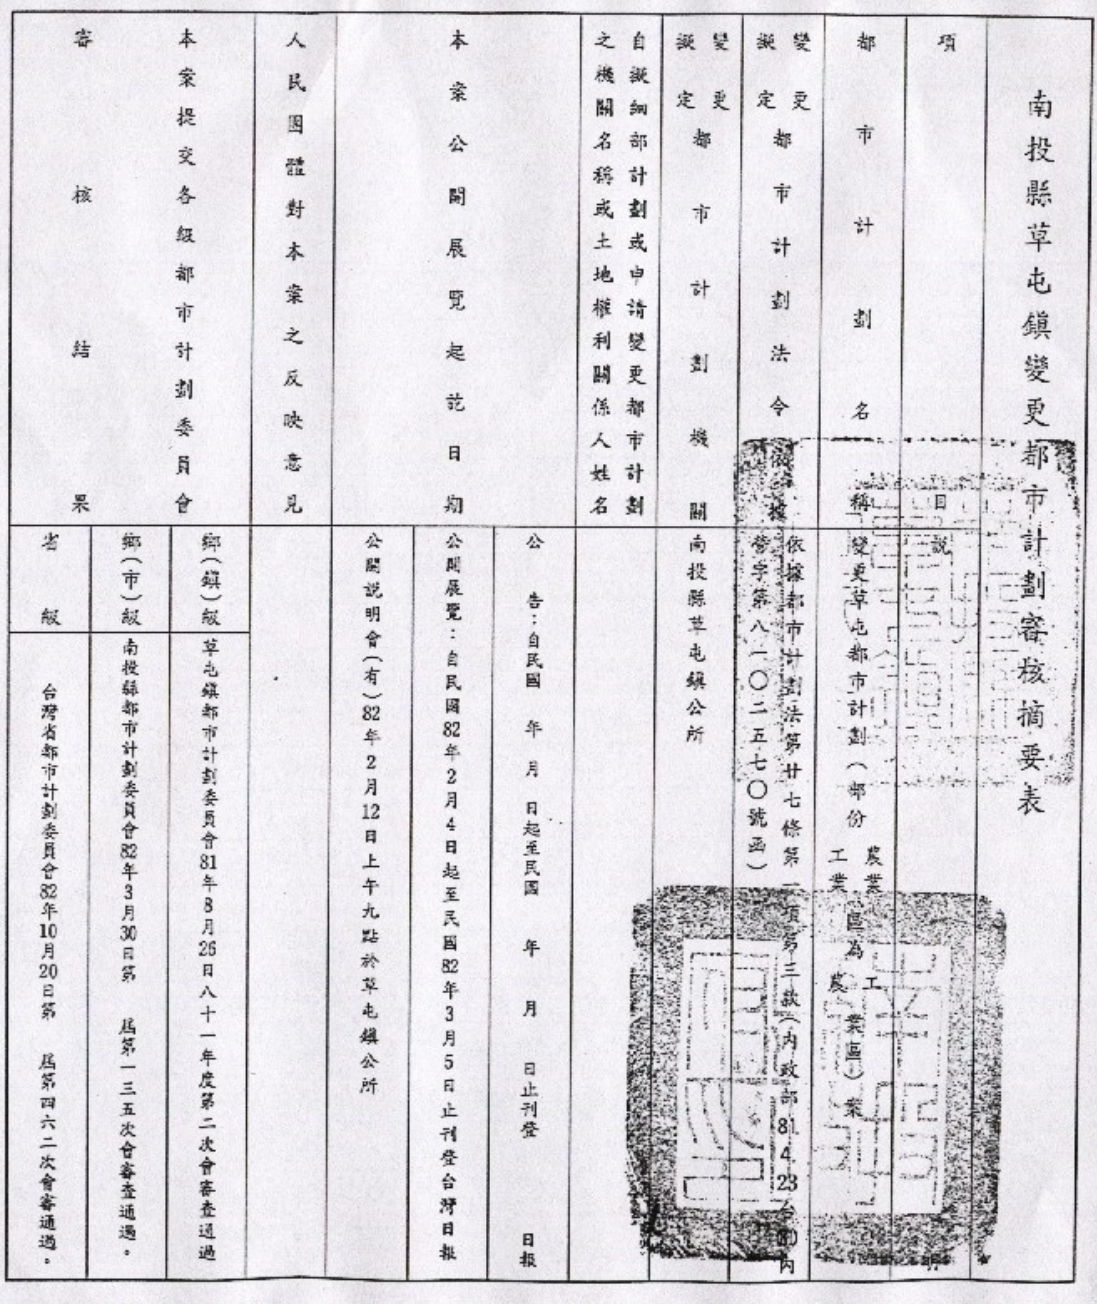 南投縣草屯鎮變更都市計劃審核摘要表
項目
說明
都市計劃名稱
變更草屯都市計劃（部份農業區為工業區）案
工業 農
變更都市計劃法令依據
擬定
依據都市計劃法第廿七條第一項第三款（內政部81 4 23台80內
營字第八一〇二五七〇號函）
變更都市計劃機關
擬定
南投縣草屯鎮公所
自擬細部計劃或申請變更都市計劃
之機關名稱或土地權利關係人姓名
本案公開展覽起訖日期
公告：自民國 年 月 日起至民國 年 月 日止刊登 日報
公開展覽：自民國82年2月4日起至民國82年3月5日止刊登台灣日報
公開說明會（有）82年2月12日上午九點於草屯鎮公所
人民團體對本案之反映意見
本案提交各級都市計劃委員會
審核結果
鄉（鎮）級
草屯鎮都市計劃委員會81年8月26日八十一年度第二次會審查通過
鄉（市）級
南投縣都市計劃委員會82年3月30日第 屆第一三五次會審查通過。
省級
台灣省都市計劃委員會82年10月20日第 屆第四六二次會審通過。